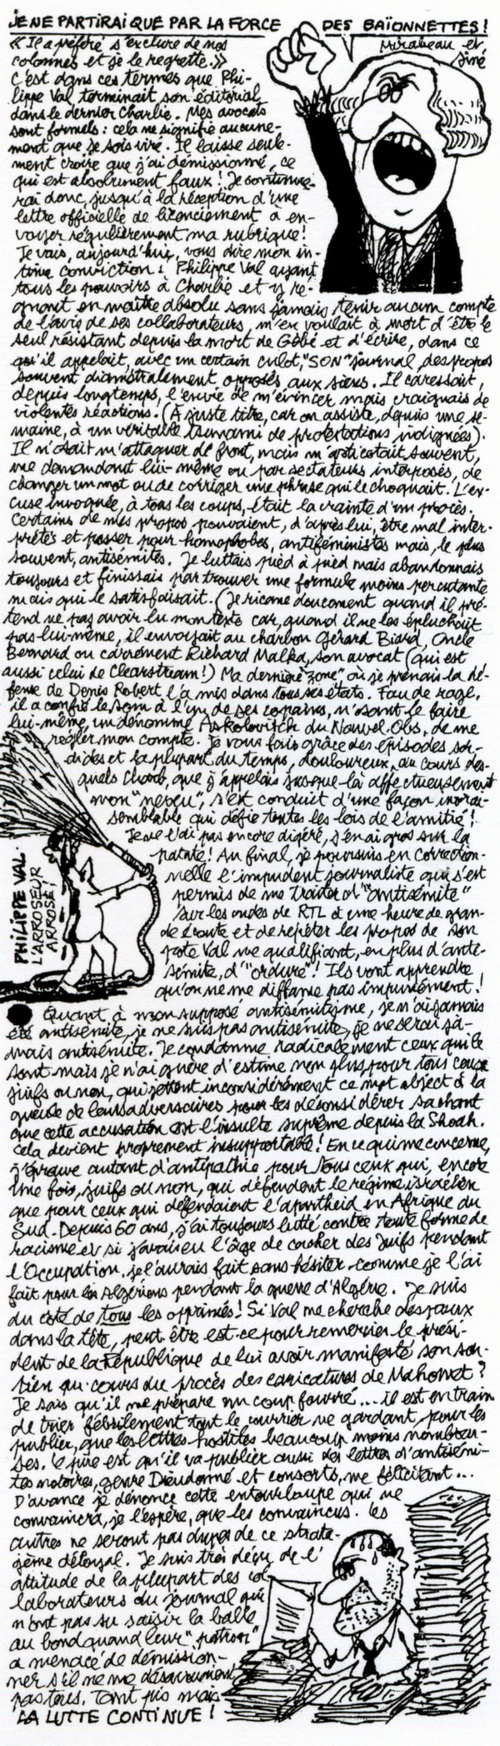 JE NE PARTIRAI QUE PAR LA FORCE DES BAÏONNETTES !
Mirabeau et
Siné
« Il a préféré s'exclure de nos
colonnes et je le regrette.»
C'est dans ces termes que Phi-
lippe Val terminait son éditorial
dans le dernier Charlie. Mes avocats
sont formels : cela ne signifie aucune-
ment que je sois viré. Il laisse seule-
ment croire que j'ai démissionné, ce
qui est absolument faux ! Je continue-
rai donc, jusqu'à la réception d'une
lettre officielle de licenciement à en-
voyer régulièrement ma rubrique !
Je vais, aujourd'hui, vous dire mon in-
time conviction : Philippe Val ayant
tous les pouvoirs à Charlie et y ré-
gnant en maître absolu sans jamais tenir aucun compte
de l'avis de ses collaborateurs, m'en voulait à mort d'être le
seul résistant depuis la mort de Gébé et d'écrire, dans ce
qu'il appelait, avec un certain culot, "SON" journal, des propos
souvent diamétralement opposés aux siens. Il caressait,
depuis longtemps, l'envie de m'évincer mais craignait de
violentes réactions. (À juste titre, car on assiste, depuis une se-
maine, à un véritable tsunami de protestations indignées).
Il n'osait m'attaquer de front, mais m'asticotait souvent,
me demandant lui-même ou par sectateurs interposés, de
changer un mot ou de corriger une phrase qui le choquait. L'ex-
cuse invoquée, à tous les coups, était la crainte d'un procès.
Certains de mes propos pouvaient, d'après lui, être mal inter-
prétés et passer pour homophobes, antiféministes mais, le plus
souvent, antisémites. Je luttais pied à pied mais abandonnais
toujours et finissais par trouver une formule moins percutante
mais qui le satisfaisait. (Je ricane doucement quand il pré-
tend ne pas avoir lu mon texte car, quand il ne les épluchait
pas lui-même, il envoyait au charbon Gérard Biard, Oncle
Bernard ou carrément Richard Malka, son avocat (qui est
aussi celui de Clearstream !) Ma dernière "zone" où je prenais la dé-
fense de Denis Robert l'a mis dans tous ses états. Fou de rage,
il a confié le soin à l'un de ses copains, n'osant le faire
lui-même, un dénommé Askolovitch du Nouvel Obs, de me
régler mon compte. Je vous fais grâce des épisodes sor-
dides et la plupart du temps, douloureux, au cours des-
quels Charb, que j'appelais jusque-là affectueusement
mon "neveu", s'est conduit d'une façon invrai-
semblable qui défie toutes les lois de l'amitié !
Je ne l'ai pas encore digéré, j'en ai gros sur la
patate ! Au final, je poursuis en correction-
nelle l'impudent journaliste qui s'est
permis de me traiter d'"antisémite"
sur les ondes de RTL à une heure de gran-
de écoute et de répéter les propos de son
pote Val me qualifiant, en plus d'anti-
sémite, d'"ordure" ! Ils vont apprendre
qu'on ne me diffame pas impunément !
PHILIPPE VAL.
L'ARROSEUR
ARROSÉ !
Quant à mon supposé antisémitisme, je n'ai jamais
été antisémite, je ne suis pas antisémite, je ne serai ja-
mais antisémite. Je condamne radicalement ceux qui le
sont mais je n'ai guère d'estime non plus pour tous ceux,
juifs ou non, qui jettent inconsidérément ce mot abject à la
gueule de leurs adversaires pour les déconsidérer sachant
que cette accusation est l'insulte suprême depuis la Shoah.
Cela devient proprement insupportable ! En ce qui me concerne,
j'éprouve autant d'antipathie pour tous ceux qui, encore
une fois, juifs ou non, qui défendent le régime israélien
que pour ceux qui défendaient l'apartheid en Afrique du
Sud. Depuis 60 ans, j'ai toujours lutté contre toute forme de
racisme et si j'avais eu l'âge de cacher des Juifs pendant
l'Occupation, je l'aurais fait sans hésiter comme je l'ai
fait pour les Algériens pendant la guerre d'Algérie. Je suis
du côté de tous les opprimés ! Si Val me cherche des poux
dans la tête, peut être est-ce pour remercier le prési-
dent de la République de lui avoir manifesté son sou-
tien au cours du procès des caricatures de Mahomet ?
Je sais qu'il me prépare un coup fourré... il est en train
de trier fébrilement tout le courrier ne gardant, pour les
publier, que les lettres hostiles beaucoup moins nombreu-
ses. Le pire est qu'il va publier aussi des lettres d'antisémi-
tes notoires, genre Dieudonné et consorts, me félicitant...
D'avance je dénonce cette entourloupe qui ne
convaincra, je l'espère, que les convaincus. Les
autres ne seront pas dupes de ce strata-
gème déloyal. Je suis très déçu de l'
attitude de la plupart des col
laborateurs du journal qui
n'ont pas su saisir la balle
au bond quand leur "patron"
a menacé de démission-
ner s'il ne me désavouaient
pas tous. Tant pis mais
LA LUTTE CONTINUE !